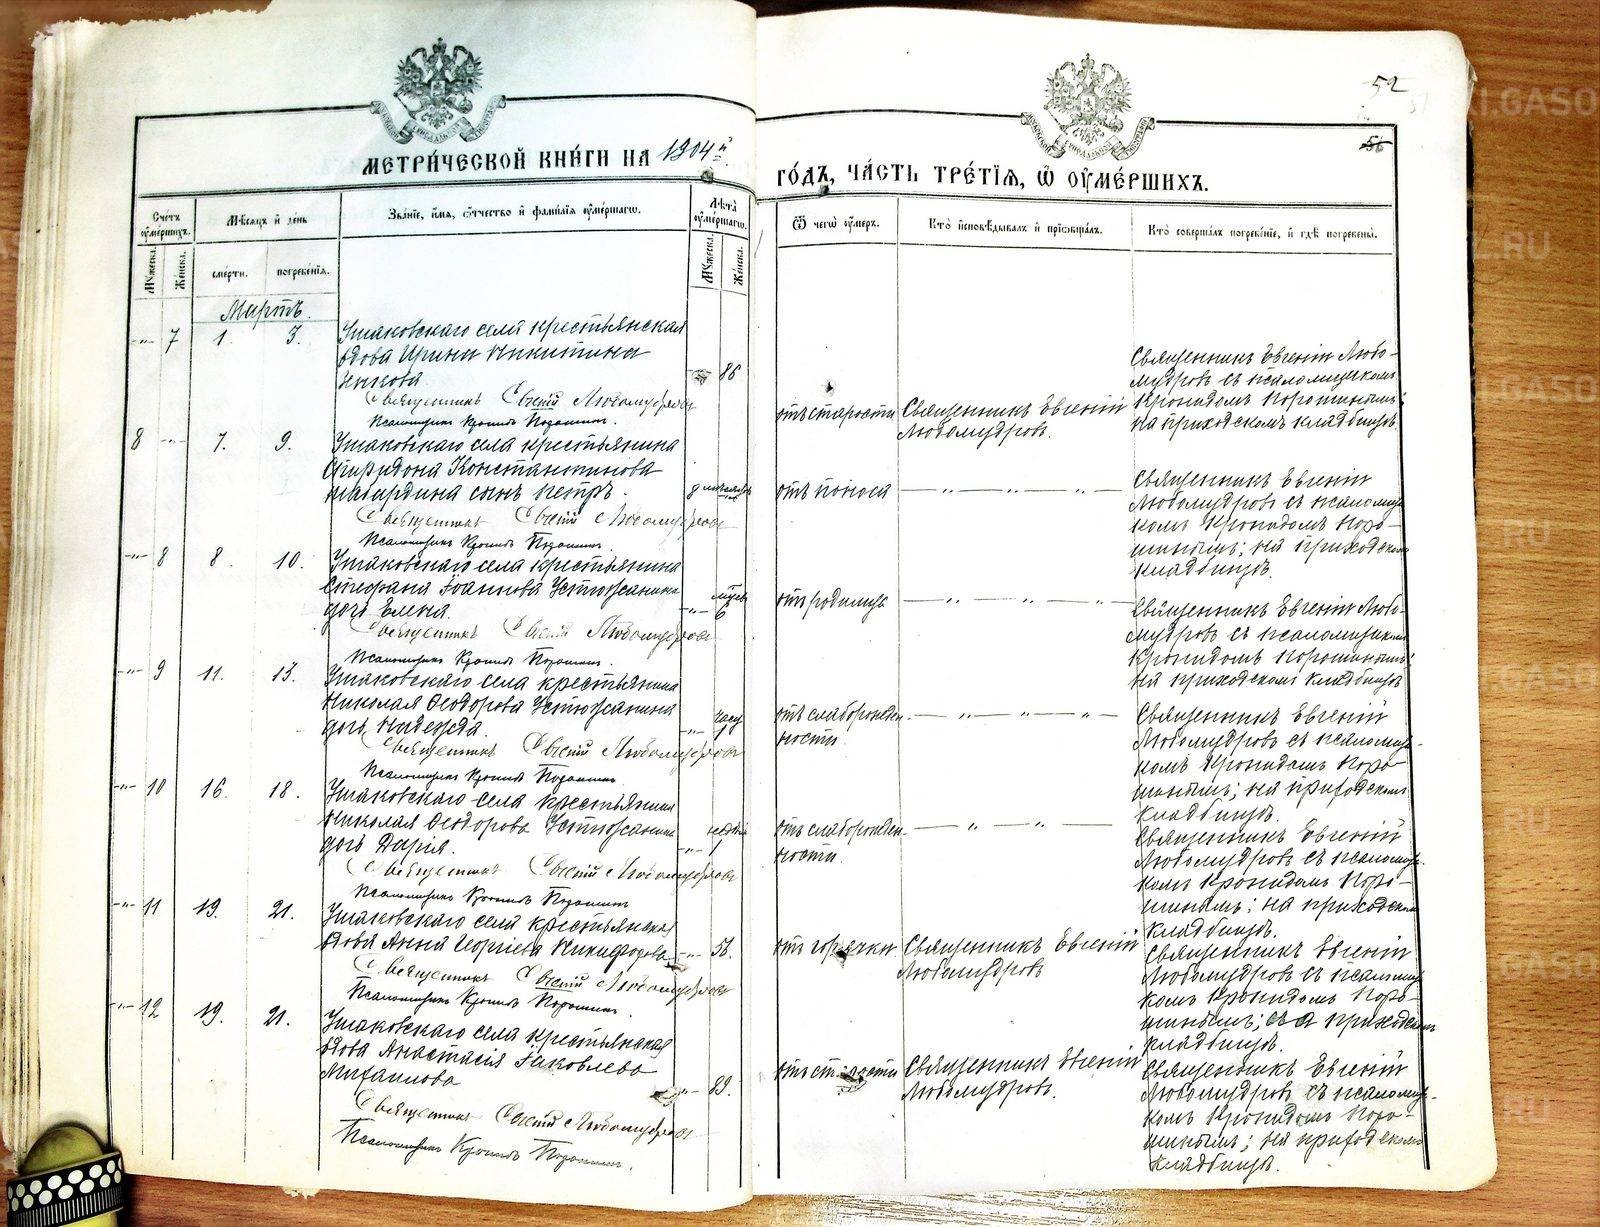 52
56
МЕТРИ́ЧЕСКОЙ КНИ́ГИ НА 1904 й
ГО́ДЪ, ЧА́СТЬ ТРЕ́ТІѦ, Ѡ ОУМЕ́РШИХЪ.
Сче́тъ оуме́ршихъ.
Мѣ́сяцъ и де́нь
Зва́ніе, и́мя, о́тчество и фами́лія оуме́ршагѡ.
Лѣ́та оуме́ршагѡ.
Ѿ чегѡ̀ оу́меръ.
Кто̀ исповѣ́дывалъ и пріобща́лъ.
Кто̀ соверша́лъ погребе́ніе, и гдѣ̀ погребены̀.
Му́жеска.
Же́нска.
сме́рти.
погребе́нія.
Му́жеска.
Же́нска.
Мартъ.
-"- 7 1. 3. Ушаковскаго села крестьянская
вдова Ирина Никитина
-"- 86
Священникъ Евгеній Любомудровъ
Псаломщикъ Кронидъ Порошинъ.
отъ старости
Священникъ Евгеній
Любомудровъ.
Священникъ Евгеній Любо-
мудровъ съ псаломщикомъ
Кронидомъ Порошинымъ;
на приходскомъ кладбищѣ.
8 -"- 7. 9. Ушаковскаго села крестьянина
Спиридона Константинова
сынъ Петръ.
8 мѣсяцевъ
Священникъ Евгеній Любомудровъ
Псаломщикъ Кронидъ Порошинъ.
отъ поноса
— " — " — " —
Священникъ Евгеній
Любомудровъ съ псаломщи-
комъ Кронидомъ Поро-
шинымъ; на приходскомъ
кладбищѣ.
-"- 8 8. 10. Ушаковскаго села крестьянина
Стефана Іоаннова Устюжанина
дочь Елена.
-"- 6
Священникъ Евгеній Любомудровъ
Псаломщикъ Кронидъ Порошинъ.
отъ родимца
— " — " — " —
Священникъ Евгеній Любо-
мудровъ съ псаломщикомъ
Кронидомъ Порошинымъ;
на приходскомъ кладбищѣ
-"- 9 11. 13. Ушаковскаго села крестьянина
Николая Ѳеодорова Устюжанина
дочь Надежда.
Священникъ Евгеній Любомудровъ
Псаломщикъ Кронидъ Порошинъ
отъ слаборожден-
ности.
— " — " — " —
Священникъ Евгеній
Любомудровъ съ псаломщи-
комъ Кронидомъ Поро-
шинымъ; на приходскомъ
кладбищѣ.
-"- 10 16. 18. Ушаковскаго села крестьянина
Николая Ѳеодорова Устюжанина
дочь Дарія.
-"- 1
Священникъ Евгеній Любомудровъ
Псаломщикъ Кронидъ Порошинъ
отъ слаборожден-
ности.
— " — " —
Священникъ Евгеній
Любомудровъ съ псаломщи-
комъ Кронидомъ Поро-
шинымъ; на приходскомъ
кладбищѣ.
-"- 11 19. 21. Ушаковскаго села крестьянская
вдова Анна Георгіева Никифорова
Священникъ Евгеній Любомудровъ
Псаломщикъ Кронидъ Порошинъ.
отъ горячки
Священникъ Евгеній
Любомудровъ
Священникъ Евгеній
Любомудровъ съ псаломщи-
комъ Кронидомъ Поро-
шинымъ; на приходскомъ
кладбищѣ.
-"- 12 19. 21. Ушаковскаго села крестьянская
вдова Анастасія Іаковлева
Михаилова
-"- 89.
Священникъ Евгеній Любомудровъ
Псаломщикъ Кронидъ Порошинъ.
отъ старости
Священникъ Евгеній
Любомудровъ.
Священникъ Евгеній
Любомудровъ съ псаломщи-
комъ Кронидомъ Поро-
шинымъ; на приходскомъ
кладбищѣ.